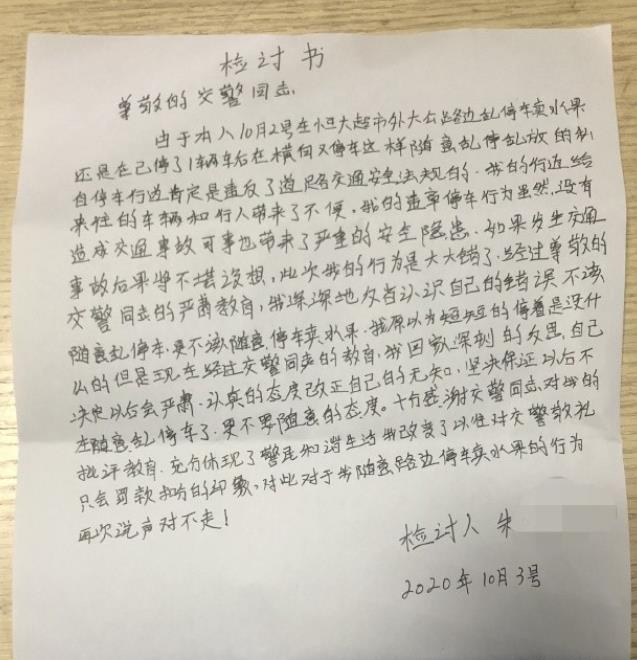 检讨书
尊敬的交警同志.
由于本人10月2号在恒大超市外大公路边乱停车卖水果
还是在己停了1辆车后在横向又停车这样随意乱停乱放的私
自停车行边肯定是违反了道路交通安全法规的.我的行近给
来往的车辆和行人带来了不便,我的违章停车行为虽然.没有
造成交通事故可事也带来了严重的安全隐患.如果发生交通
事故后果将不堪设想,此次我的行为是大大错了.经过尊敬的
交警同志的严肃教育,我深深地反省认识自己的错误不该
随意乱停车.更不该随意停车卖水果.我原以为短短的停着是没什
么的但是现在经过交警同志的教育,我回家深刻的反思.自己
决定以后会严肃.认真的态度改正自己的无知,坚决保证以后不
在随意乱停车了.更不要随意的态度。十分感谢交警同志对我的
批评教育.充分体现了警民和谐生活我改变了以往对交警敬礼
只会罚款扣分的印象,对此对于我随意路边停车卖水果的行为
再次说声对不走!
检讨人 朱
2020年10月3号